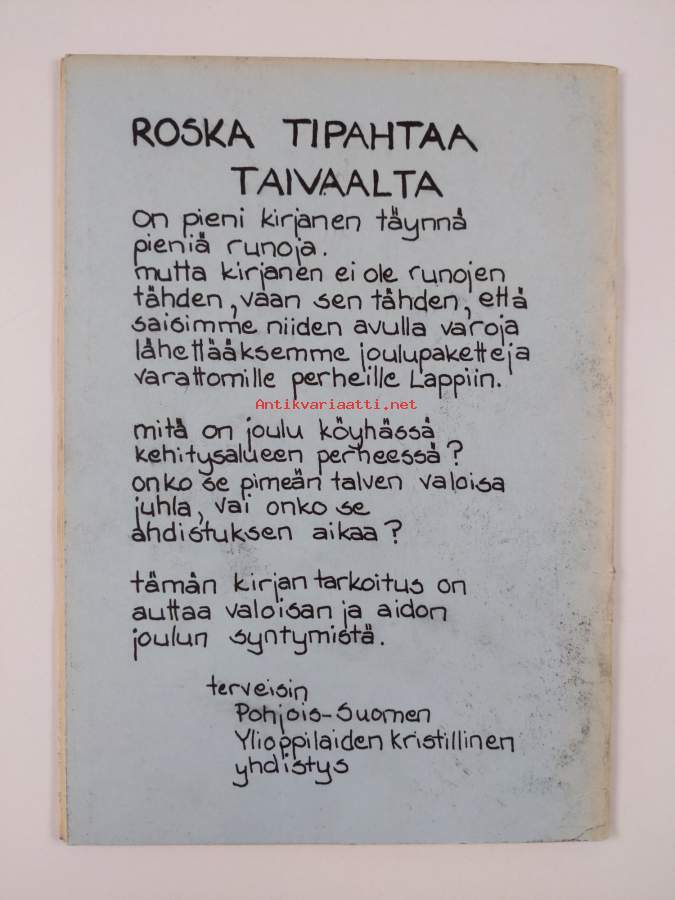 ROSKA TIPAHTAA
TAIVAALTA
on pieni kirjanen täynnä
pieniä runoja.
mutta kirjanen ei ole runojen
tähden, vaan sen tähden, että
saisimme niiden avulla varoja
lähettääksemme joulupaketteja
varattomille perheille Lappiin.
Antikvariaatti.net
mitä on joulu köyhässä
kehitysalueen perheessä?
onko se pimeän talven valoisa
juhla, vai onko se
ahdistuksen aikaa?
tämän kirjan tarkoitus on
auttaa valoisan ja aidon
joulun syntymistä.
terveisin
Pohjois-Suomen
Ylioppilaiden kristillinen
yhdistys